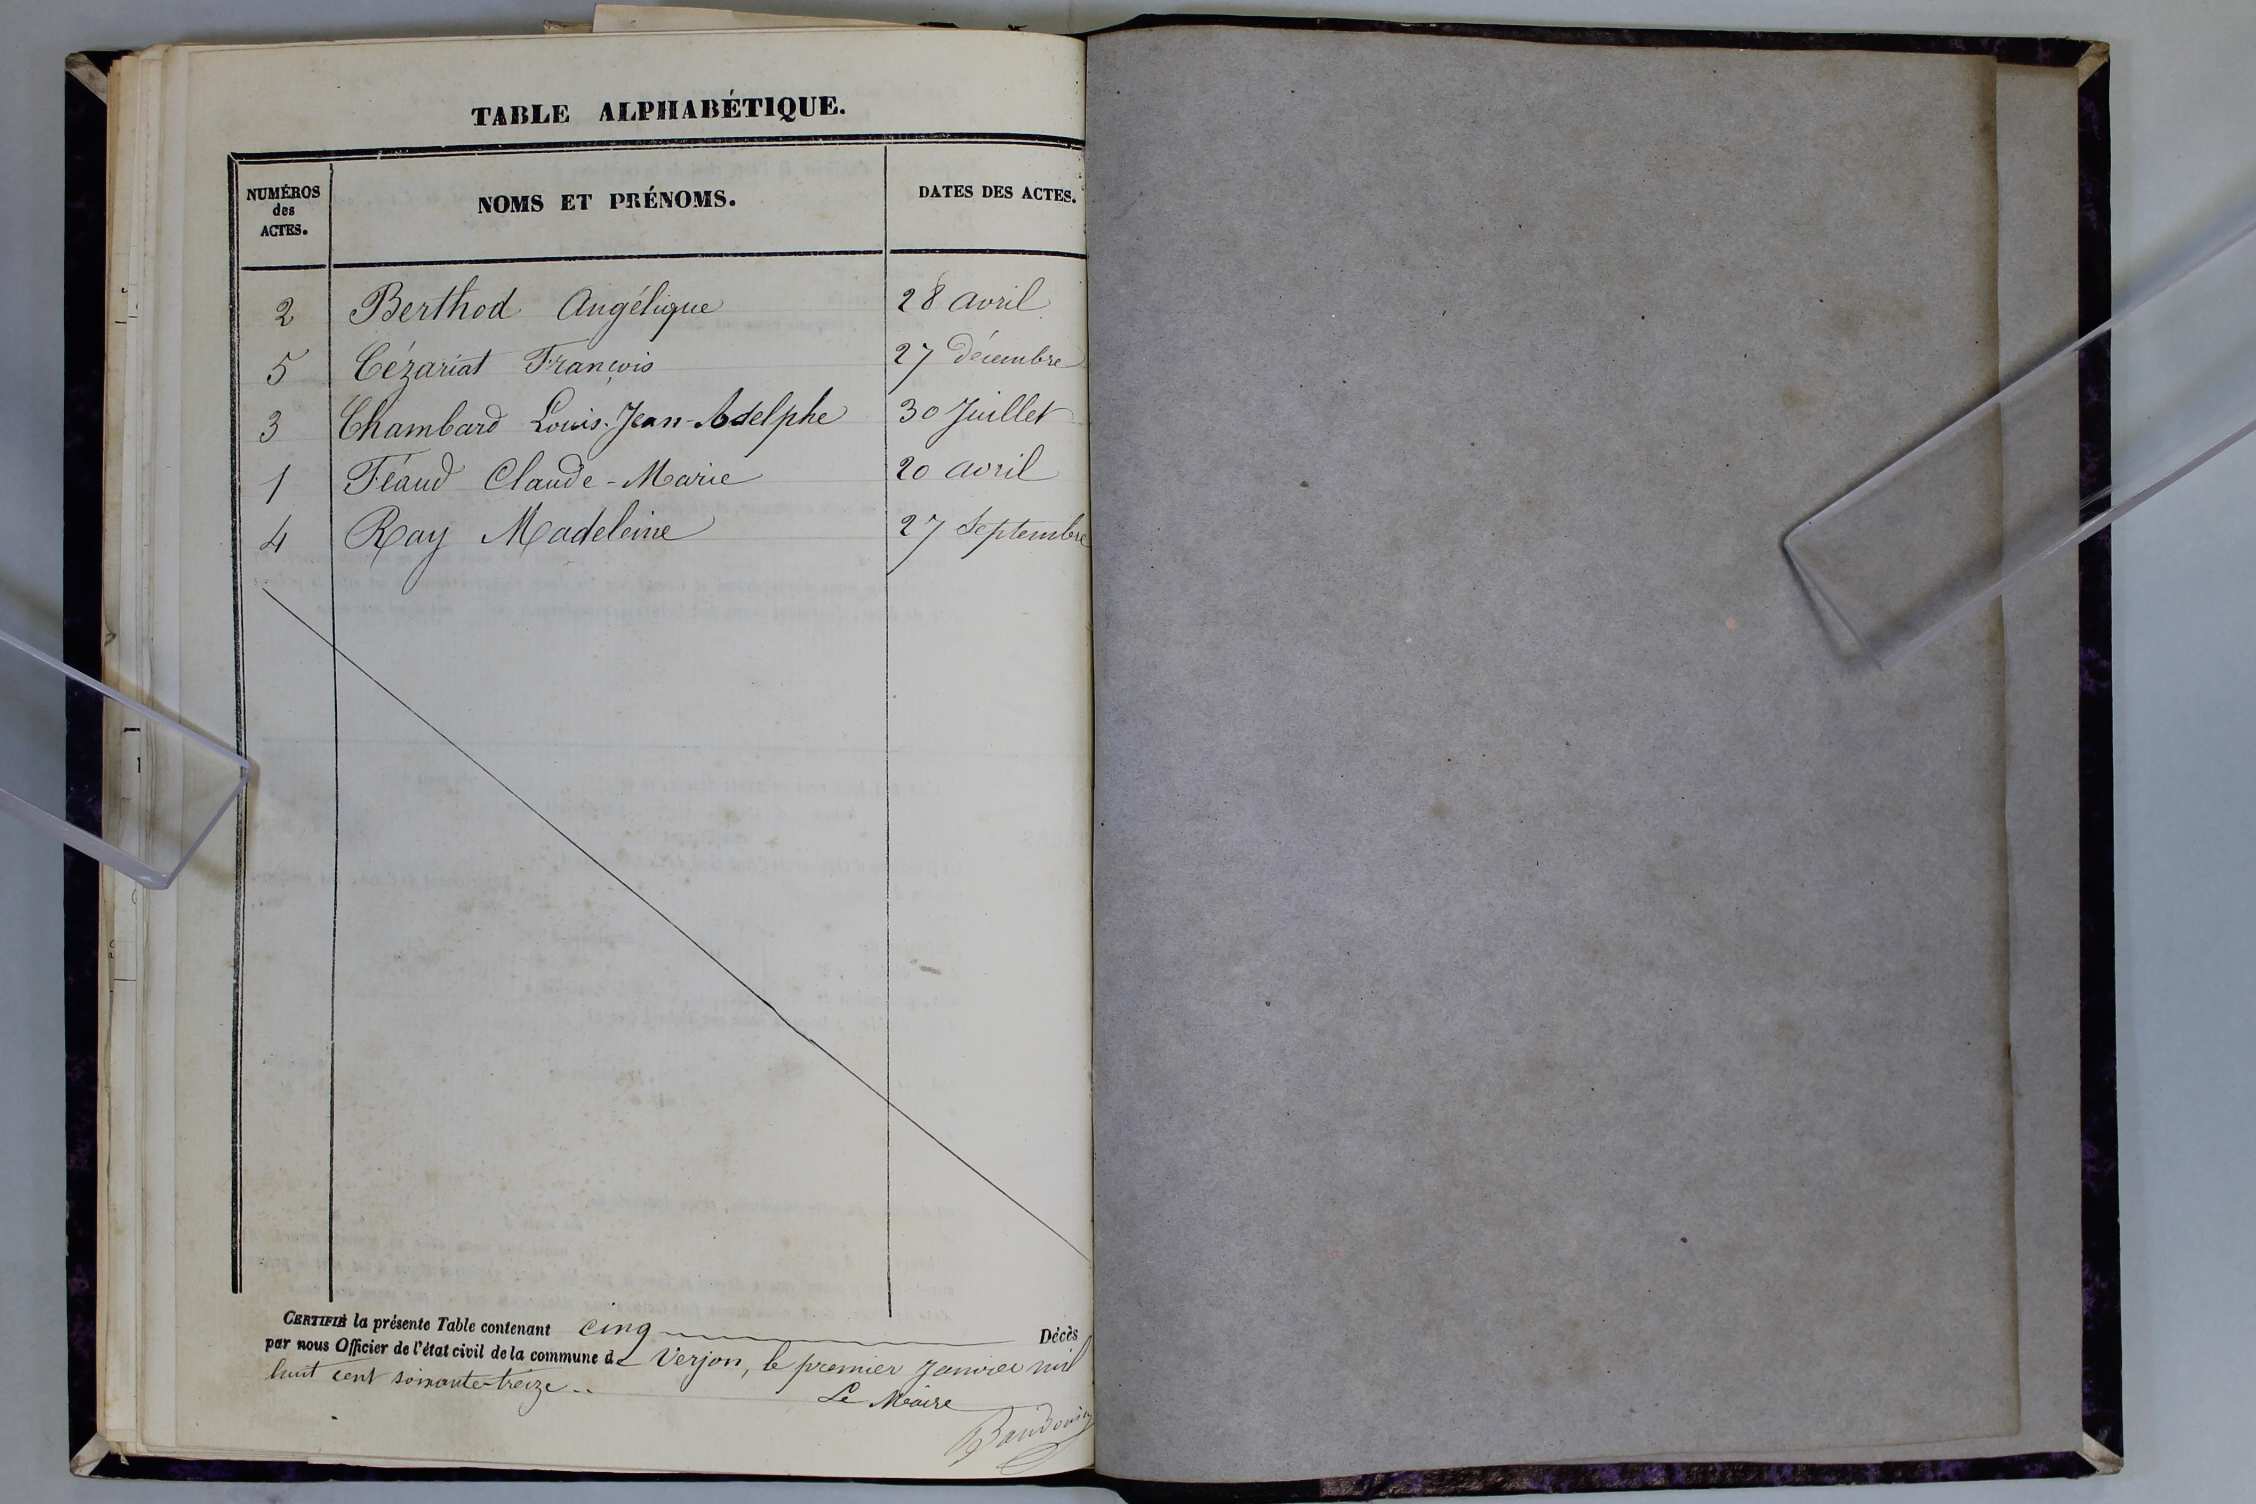 TABLE ALPHABÉTIQUE.
NUMÉROS des ACTES. NOMS ET PRÉNOMS. DATES DES ACTES.
2 Berthod Angélique 28 avril
5 Cézariat François 27 décembre
3 Chambard Louis-Jean-Adelphe 30 Juillet
1 Féaud Claude-Marie 20 avril
4 Ray Madeleine 27 Septembre
CERTIFIÉ la présente Table contenant cinq Décès
par nous Officier de l'état civil de la commune de Verjon, le premier Janvier mil
huit cent soixante-treize..
Le Maire
Baudouin